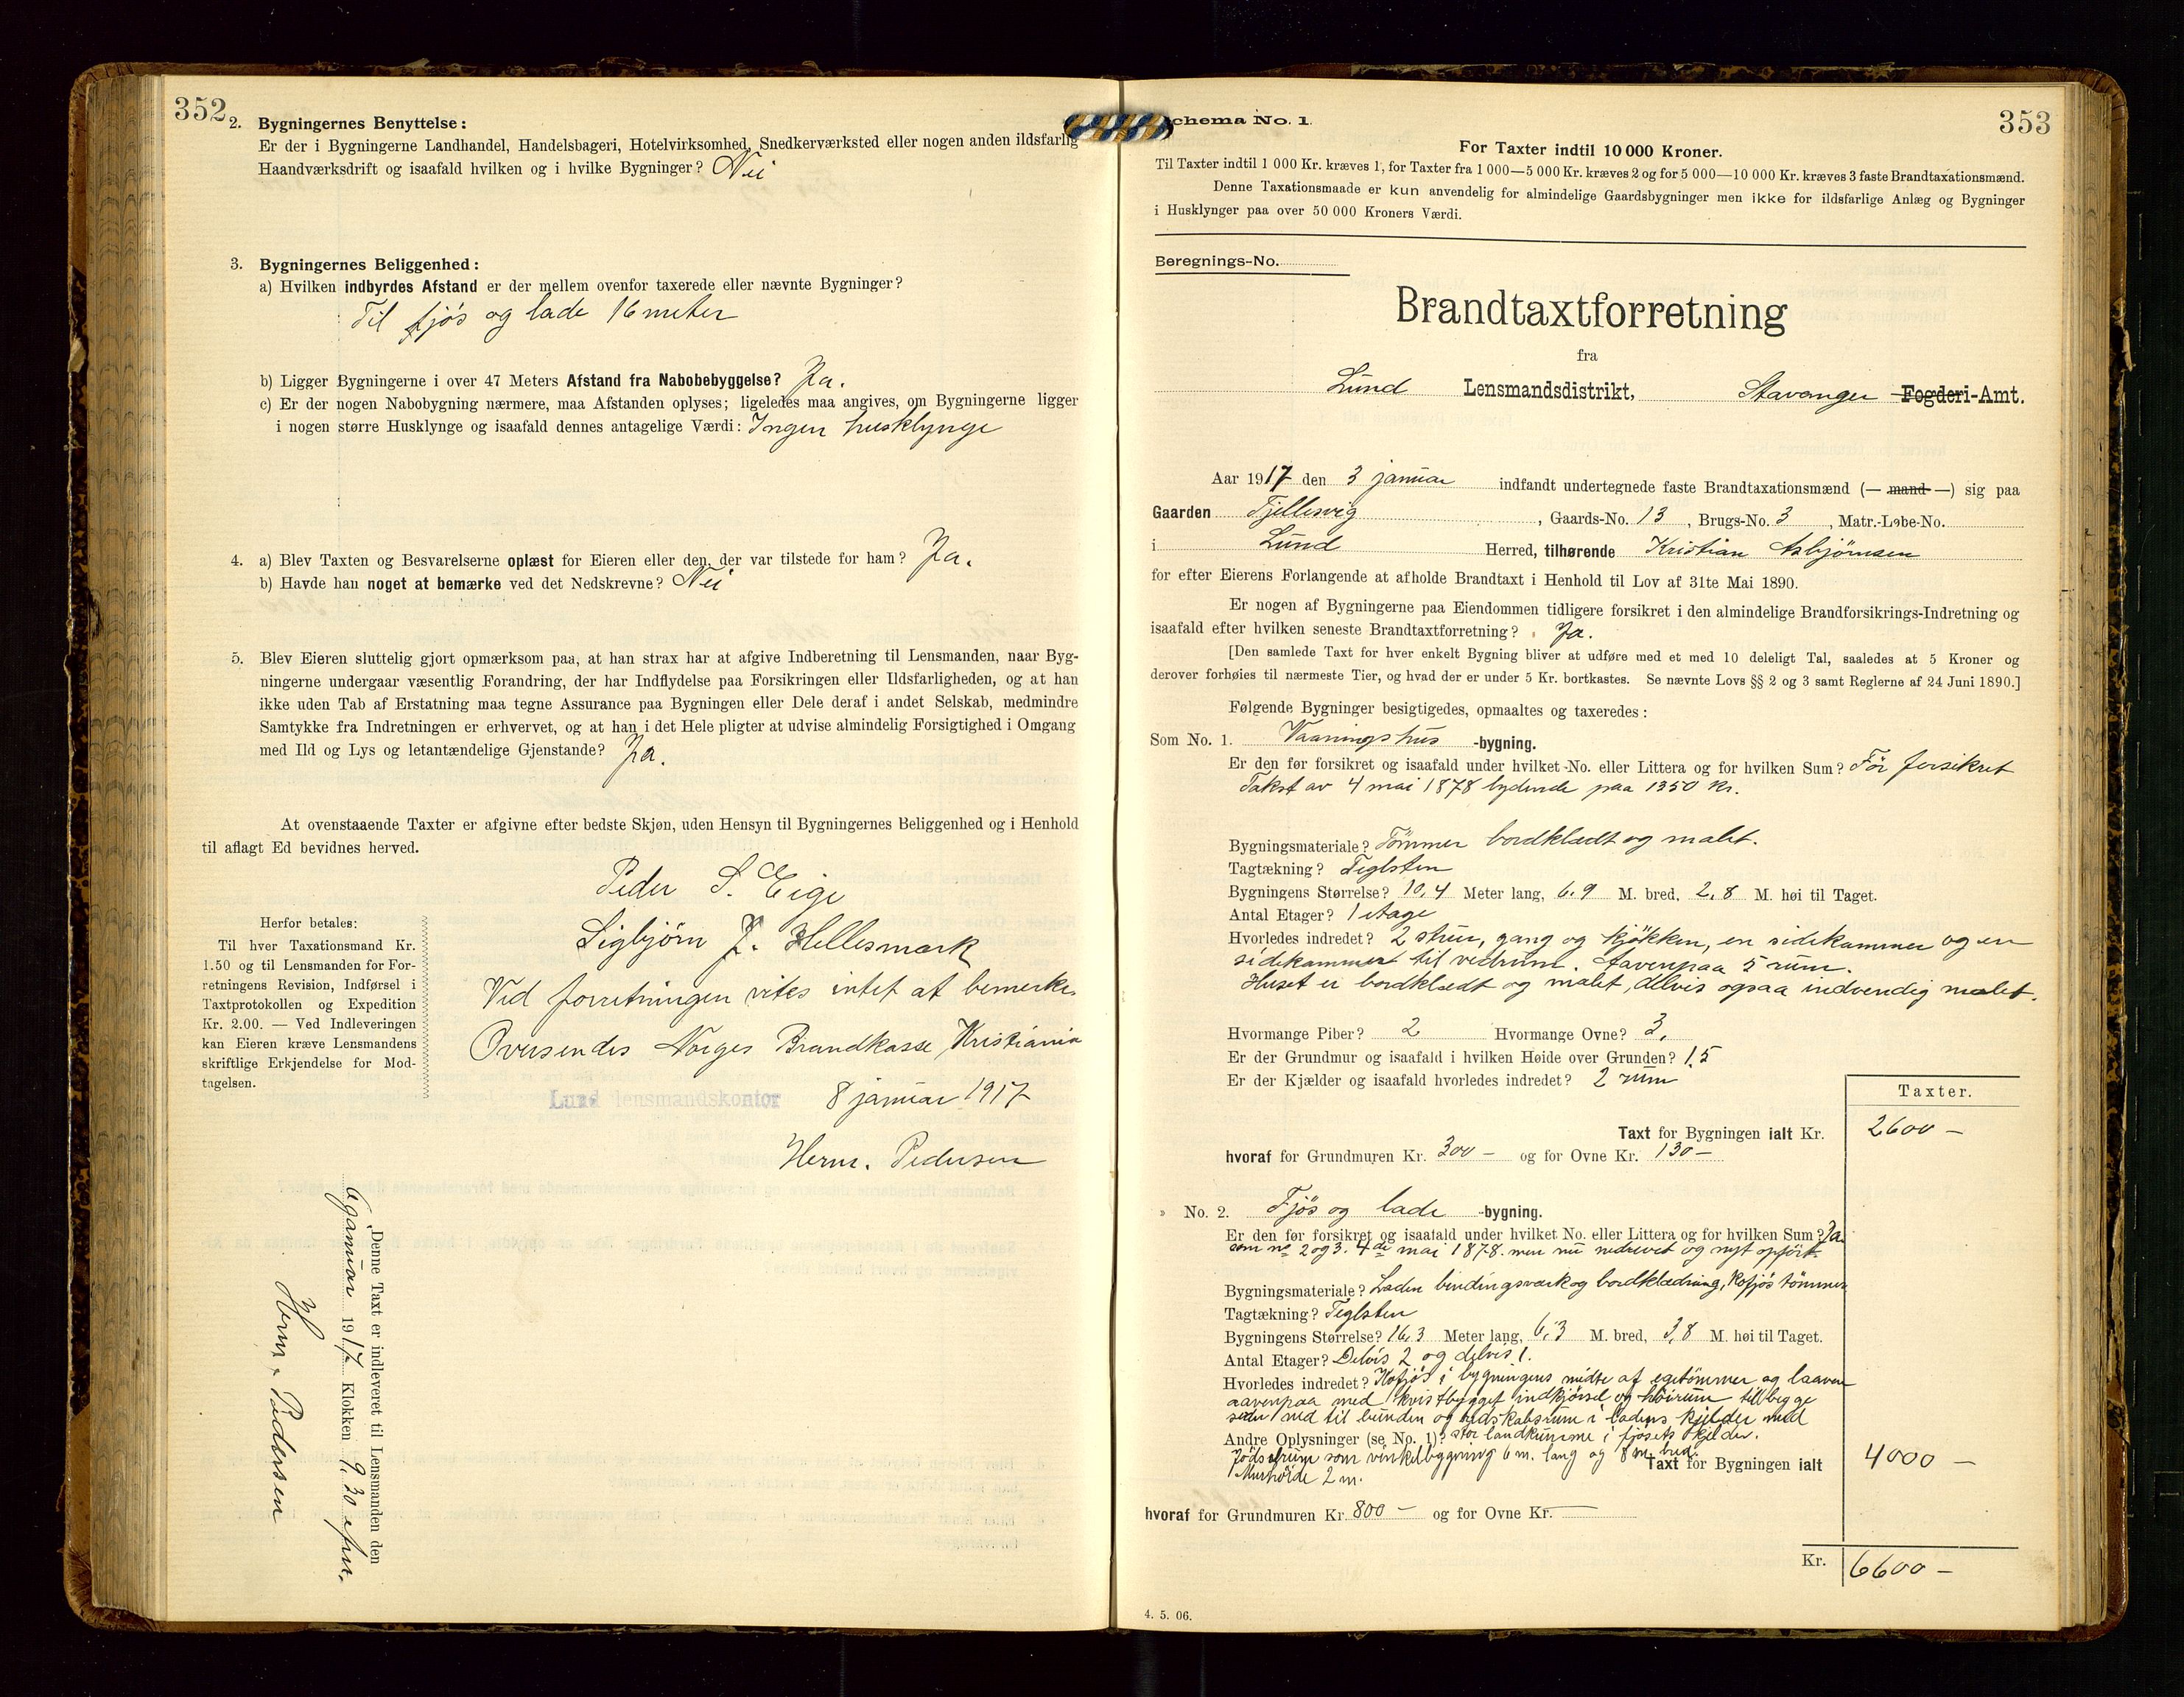 352
2. Bygningernes Benyttelse:
Er der i Bygningerne Landhandel, Handelsbageri, Hotelvirksomhed, Snedkerværksted eller nogen anden ildsfarlig
Haandværksdrift og isaafald hvilken og i hvilke Bygninger? Nei
3. Bygningernes Beliggenhed:
a) Hvilken indbyrdes Afstand er der mellem ovenfor taxerede eller nævnte Bygninger?
Til fjøs og lade 16 meter
b) Ligger Bygningerne i over 47 Meters Afstand fra Nabobebyggelse? Ja.
c) Er der nogen Nabobygning nærmere, maa Afstanden oplyses; ligeledes maa angives, om Bygningerne ligger
i nogen større Husklynge og isaafald dennes antagelige Værdi: Ingen husklynge
4. a) Blev Taxten og Besvarelserne oplæst for Eieren eller den, der var tilstede for ham? Ja.
b) Havde han noget at bemærke ved det Nedskrevne? Nei
5. Blev Eieren sluttelig gjort opmærksom paa, at han strax har at afgive Indberetning til Lensmanden, naar Byg-
ningerne undergaar væsentlig Forandring, der har Indflydelse paa Forsikringen eller Ildsfarligheden, og at han
ikke uden Tab af Erstatning maa tegne Assurance paa Bygningen eller Dele deraf i andet Selskab, medmindre
Samtykke fra Indretningen er erhvervet, og at han i det Hele pligter at udvise almindelig Forsigtighed i Omgang
med Ild og Lys og letantændelige Gjenstande? Ja.
At ovenstaaende Taxter er afgivne efter bedste Skjøn, uden Hensyn til Bygningernes Beliggenhed og i Henhold
til aflagt Ed bevidnes herved.
Peder S. Eige
Sigbjörn J. Hellesmark
Herfor betales:
Til hver Taxationsmand Kr.
1.50 og til Lensmanden for For-
retningens Revision, Indførsel i
Taxtprotokollen og Expedition
Kr. 2.00. — Ved Indleveringen
kan Eieren kræve Lensmandens
skriftlige Erkjendelse for Mod-
tagelsen.
Ved forretningen vites intet at bemerke.
Oversendes Norges Brandkasse, Kristiania
Lund lensmandskontor 8 januar 1917
Herm. Pedersen
Denne Taxt er indleveret til Lensmanden den
6 januar 1917 Klokken 9.30 efm.
Herm. Pedersen
Schema No. 1.
353
For Taxter indtil 10 000 Kroner.
Til Taxter indtil 1 000 Kr. kræves 1, for Taxter fra 1 000—5 000 Kr. kræves 2 og for 5 000—10 000 Kr. kræves 3 faste Brandtaxationsmænd.
Denne Taxationsmaade er kun anvendelig for almindelige Gaardsbygninger men ikke for ildsfarlige Anlæg og Bygninger
i Husklynger paa over 50 000 Kroners Værdi.
Beregnings-No.
Brandtaxtforretning
fra
Lund Lensmandsdistrikt, Stavanger Fogderi-Amt.
Aar 1917 den 3 januar indfandt undertegnede faste Brandtaxationsmænd (— mand —) sig paa
Gaarden Fjellesvig, Gaards-No. 13, Brugs-No. 3, Matr.-Løbe-No.
i Lund Herred, tilhørende Kristian Asbjörnsen
for efter Eierens Forlangende at afholde Brandtaxt i Henhold til Lov af 31te Mai 1890.
Er nogen af Bygningerne paa Eiendommen tidligere forsikret i den almindelige Brandforsikrings-Indretning og
isaafald efter hvilken seneste Brandtaxtforretning? Ja.
[Den samlede Taxt for hver enkelt Bygning bliver at udføre med et med 10 deleligt Tal, saaledes at 5 Kroner og
derover forhøies til nærmeste Tier, og hvad der er under 5 Kr. bortkastes. Se nævnte Lovs §§ 2 og 3 samt Reglerne af 24 Juni 1890.]
Følgende Bygninger besigtigedes, opmaaltes og taxeredes:
Som No. 1. Vaaningshus -bygning.
Er den før forsikret og isaafald under hvilket No. eller Littera og for hvilken Sum? För forsikret
Takst av 4 mai 1878 lydende paa 1350 kr.
Bygningsmateriale? Tömmer bordklædt og malet.
Tagtækning? Teglsten
Bygningens Størrelse? 10,4 Meter lang, 6,9 M. bred, 2,8 M. høi til Taget.
Antal Etager? 1 etage
Hvorledes indredet? 2 stuer, gang og kjökken, en sidekammer og en
sidekammer til vedrum. Aavenpaa 5 rum.
Huset er bordklædt og malet, delvis ogsaa indvendig malet.
Hvormange Piber? 2 Hvormange Ovne? 3.
Er der Grundmur og isaafald i hvilken Høide over Grunden? 1,5
Er der Kjælder og isaafald hvorledes indredet? 2 rum
Taxter.
Taxt for Bygningen ialt Kr. 2600 —
hvoraf for Grundmuren Kr. 300 — og for Ovne Kr. 130 —
» No. 2. Fjös og lade -bygning.
Er den før forsikret og isaafald under hvilket No. eller Littera og for hvilken Sum? Ja
som no 2 og 3. 4de mai 1878. men nu nedrevet og nyt opfört.
Bygningsmateriale? Laden bindingsværk og bordklædning, kofjøs tömmer
Tagtækning? Teglsten
Bygningens Størrelse? 16,3 Meter lang, 6,3 M. bred, 3,8 M. høi til Taget.
Antal Etager? Delvis 2 og delvis 1.
Hvorledes indredet? Kofjøs i bygningens midte af egetömmer og laaven
aavenpaa med kvistbygget indkjørsel og høirum til begge
sider ned til bunden og redskabsrum i ladens kjelder med
Andre Oplysninger (se No. 1)? stor landkumme i fjøsets kjelder.
som vinkelbygning 6 m. lang og 8 m. bred.
Murhöide 2 m.
Taxt for Bygningen ialt 4000 —
hvoraf for Grundmuren Kr. 800 — og for Ovne Kr. —
Kr. 6600 —
4. 5. 06.